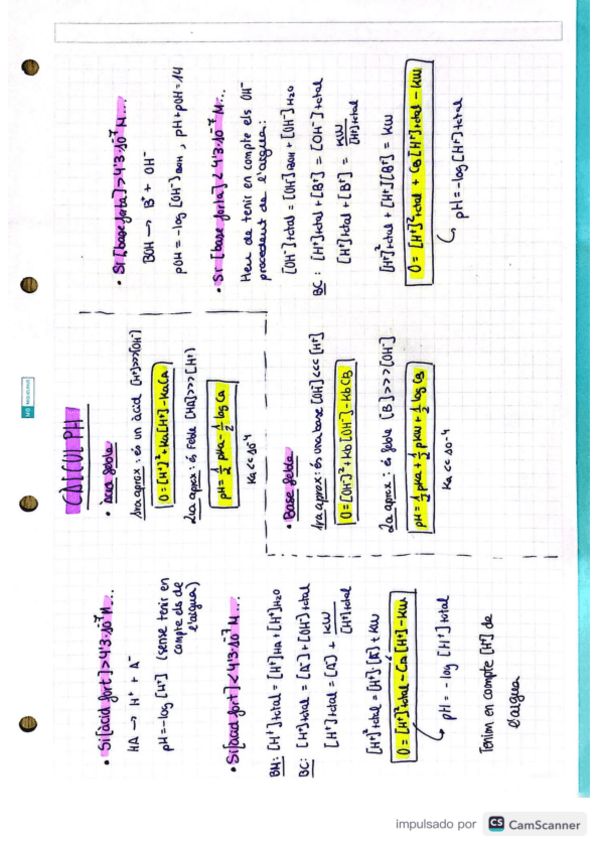 CÀLCUL PH
• Si [àcid fort] > 4'3·10⁻⁷ M...
HA → H⁺ + A⁻
pH = -log [H⁺] (sense tenir en
compte els de
l'aigua)
• Si [àcid fort] < 4'3·10⁻⁷ M...
BM: [H⁺]total = [H⁺]HA + [H⁺]H2O
BC: [H⁺]total = [A⁻] + [OH⁻]total
[H⁺]total = [A⁻] + KW/[H⁺]total
[H⁺]²total = [H⁺] [A⁻] + KW
0 = [H⁺]²total - Ca [H⁺] - KW
pH = -log [H⁺] total
Tenim en compte [H⁺] de
l'aigua
• Àcid feble
1ra aprox: és un àcid [H⁺]>>>[OH⁻]
0 = [H⁺]² + Ka[H⁺] - KaCa
2a aprox: és feble [HA]>>>[H⁺]
pH = 1/2 pKa - 1/2 log Ca
Ka << 10⁻⁴
• Base feble
1ra aprox: és una base [OH⁻] <<< [H⁺]
0 = [OH⁻]² + Kb [OH⁻] - Kb CB
2a aprox: és feble [B]>>>[OH⁻]
pH = 1/2 pKa + 1/2 pKw + 1/2 log CB
Ka << 10⁻⁴
• Si [base forta] > 4'3·10⁻⁷ M...
BOH → B⁺ + OH⁻
pOH = -log [OH⁻]BOH , pH+pOH = 14
• Si [base forta] < 4'3·10⁻⁷ M...
Hem de tenir en compte els OH⁻
procedent de l'aigua:
[OH⁻]total = [OH⁻]BOH + [OH⁻]H2O
BC: [H⁺]total + [B⁺] = [OH⁻]total
[H⁺]total + [B⁺] = KW/[H⁺]total
[H⁺]²total + [H⁺][B⁺] = KW
0 = [H⁺]²total + CB [H⁺]total - KW
pH = -log [H⁺]total
impulsado por CS CamScanner